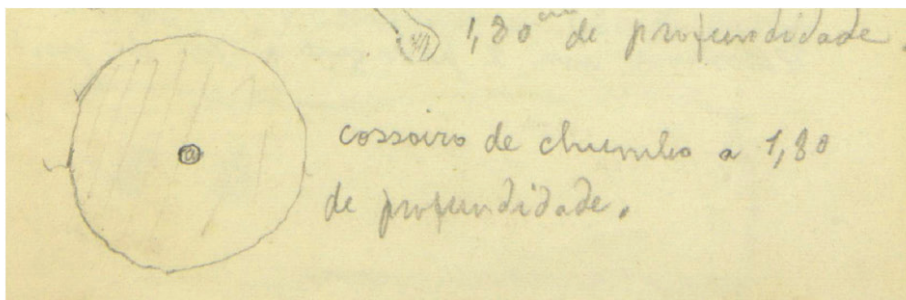 1,80 cm de profundidade.
cossoiro de chumbo a 1,80
de profundidade.